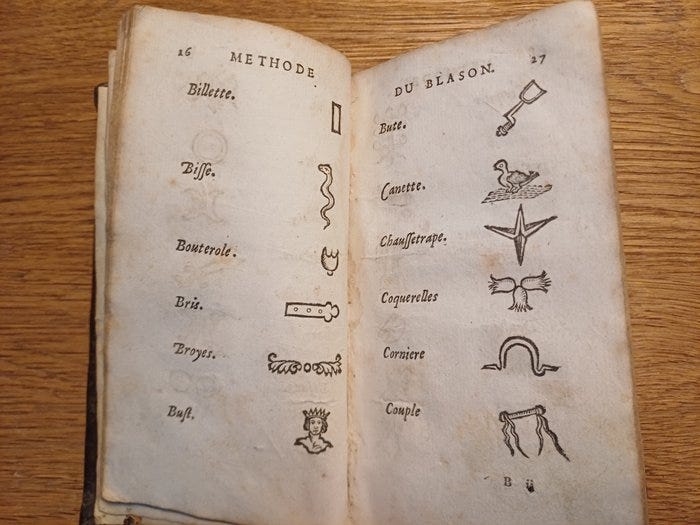 26 METHODE
Billette.
Bisse.
Bouterole.
Bris.
Broyes.
Bust.
DU BLASON. 27
Bute.
Canette.
Chaussetrape.
Coquerelles
Corniere
Couple
B ij